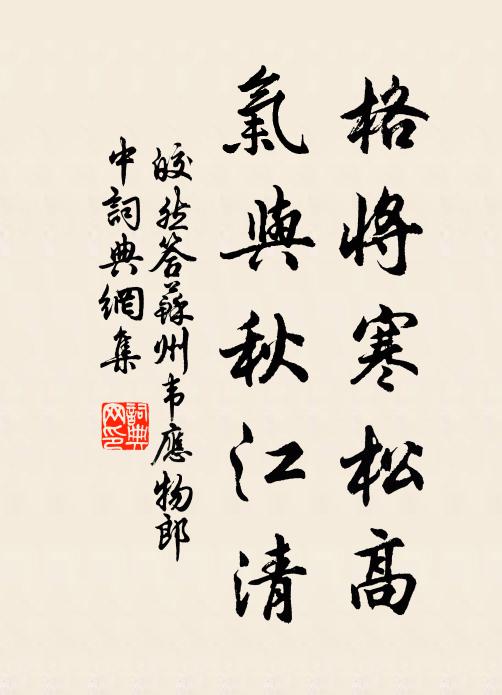 格將寒松高
氣與秋江清
皎然答蘇州韦應物郎
中詞典網集
詞典
网印